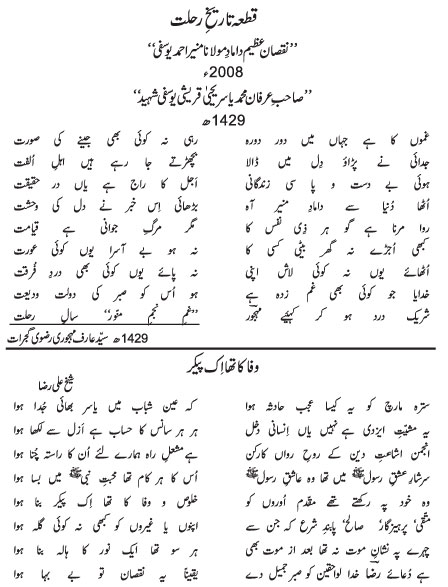 قطعہ تاریخِ رحلت
’’نقصان عظیم داماد مولانا منیر احمد یوسفی‘‘
2008ء
’’صاحبِ عرفان محمد یاسر یحیٰی قریشی یوسفی شہید‘‘
1429ھ
غموں کا ہے جہاں میں دور دورہ رہی نہ کوئی بھی جینے کی صورت
جدائی نے پڑاؤ دِل میں ڈالا بچھڑتے جا رہے ہیں اہلِ اُلفت
ہوئی بے دست و پا سی زندگانی اَجل کا راج ہے یاں در حقیقت
اُٹھا دُنیا سے دامادِ منیر آہ بڑھائی اِس خبر نے دل کی وحشت
روا مرنا ہے گو ہر ذِی نفس کا مگر مرگِ جوانی ہے قیامت
کبھی اُجڑے نہ گھر بیٹی کسی کا نہ ہو بے آسرا یوں کوئی عورت
اُٹھائے یوں نہ کوئی لاش اپنی نہ پائے یوں کوئی بھی دردِ فُرقت
خدایا جو کوئی بھی غم زدہ ہے ہو اُس کو صبر کی دولت ودیعت
شریک درد ہو کر کہیئے مہجور ’’غمِ نجمِ منور‘‘ سالِ رحلت
1429ھ سیّد عارف مہجوری رضوی گجرات
وفا کا تھا اِک پیکر
شیخ علی رضا
سترہ مارچ کو یہ کیسا عجب حادثہ ہوا کہ عین شباب میں یاسر بھائی جُدا ہوا
یہ مشیّتِ ایزدی ہے نہیں یاں اِنسانی دخل ہر ہر سانس کا حساب ہے اَزل سے لکھا ہوا
انجمن اشاعتِ دین کے روحِ رواں کارکن ہے مشعلِ راہ ہمارے لئے اُن کا راستہ چُنا ہوا
سرشارِ عشقِ رسولﷺ میں تھا وہ عاشقِ رسولﷺ اُس کا ہر کام تھا محبتِ نبیﷺ میں بسا ہوا
وہ خود پہ رکھتے تھے مقدم اَوروں کو خلوص و وفا کا تھا اِک پیکر بنا ہوا
متقی، پرہیزگار، صالح، پابندِ شرع کہ جن سے اپنوں یا غیروں کو کبھی نہ کوئی گلہ ہوا
چہرے پہ نشانِ موت نہ تھا بعد از موت بھی ہر سو تھا ایک نور کا ہالہ بنا ہوا
ہے دُعائے رضا خدا لواحقین کو صبرِ جمیل دے یقیناً یہ نقصان تو ہے بہا ہوا